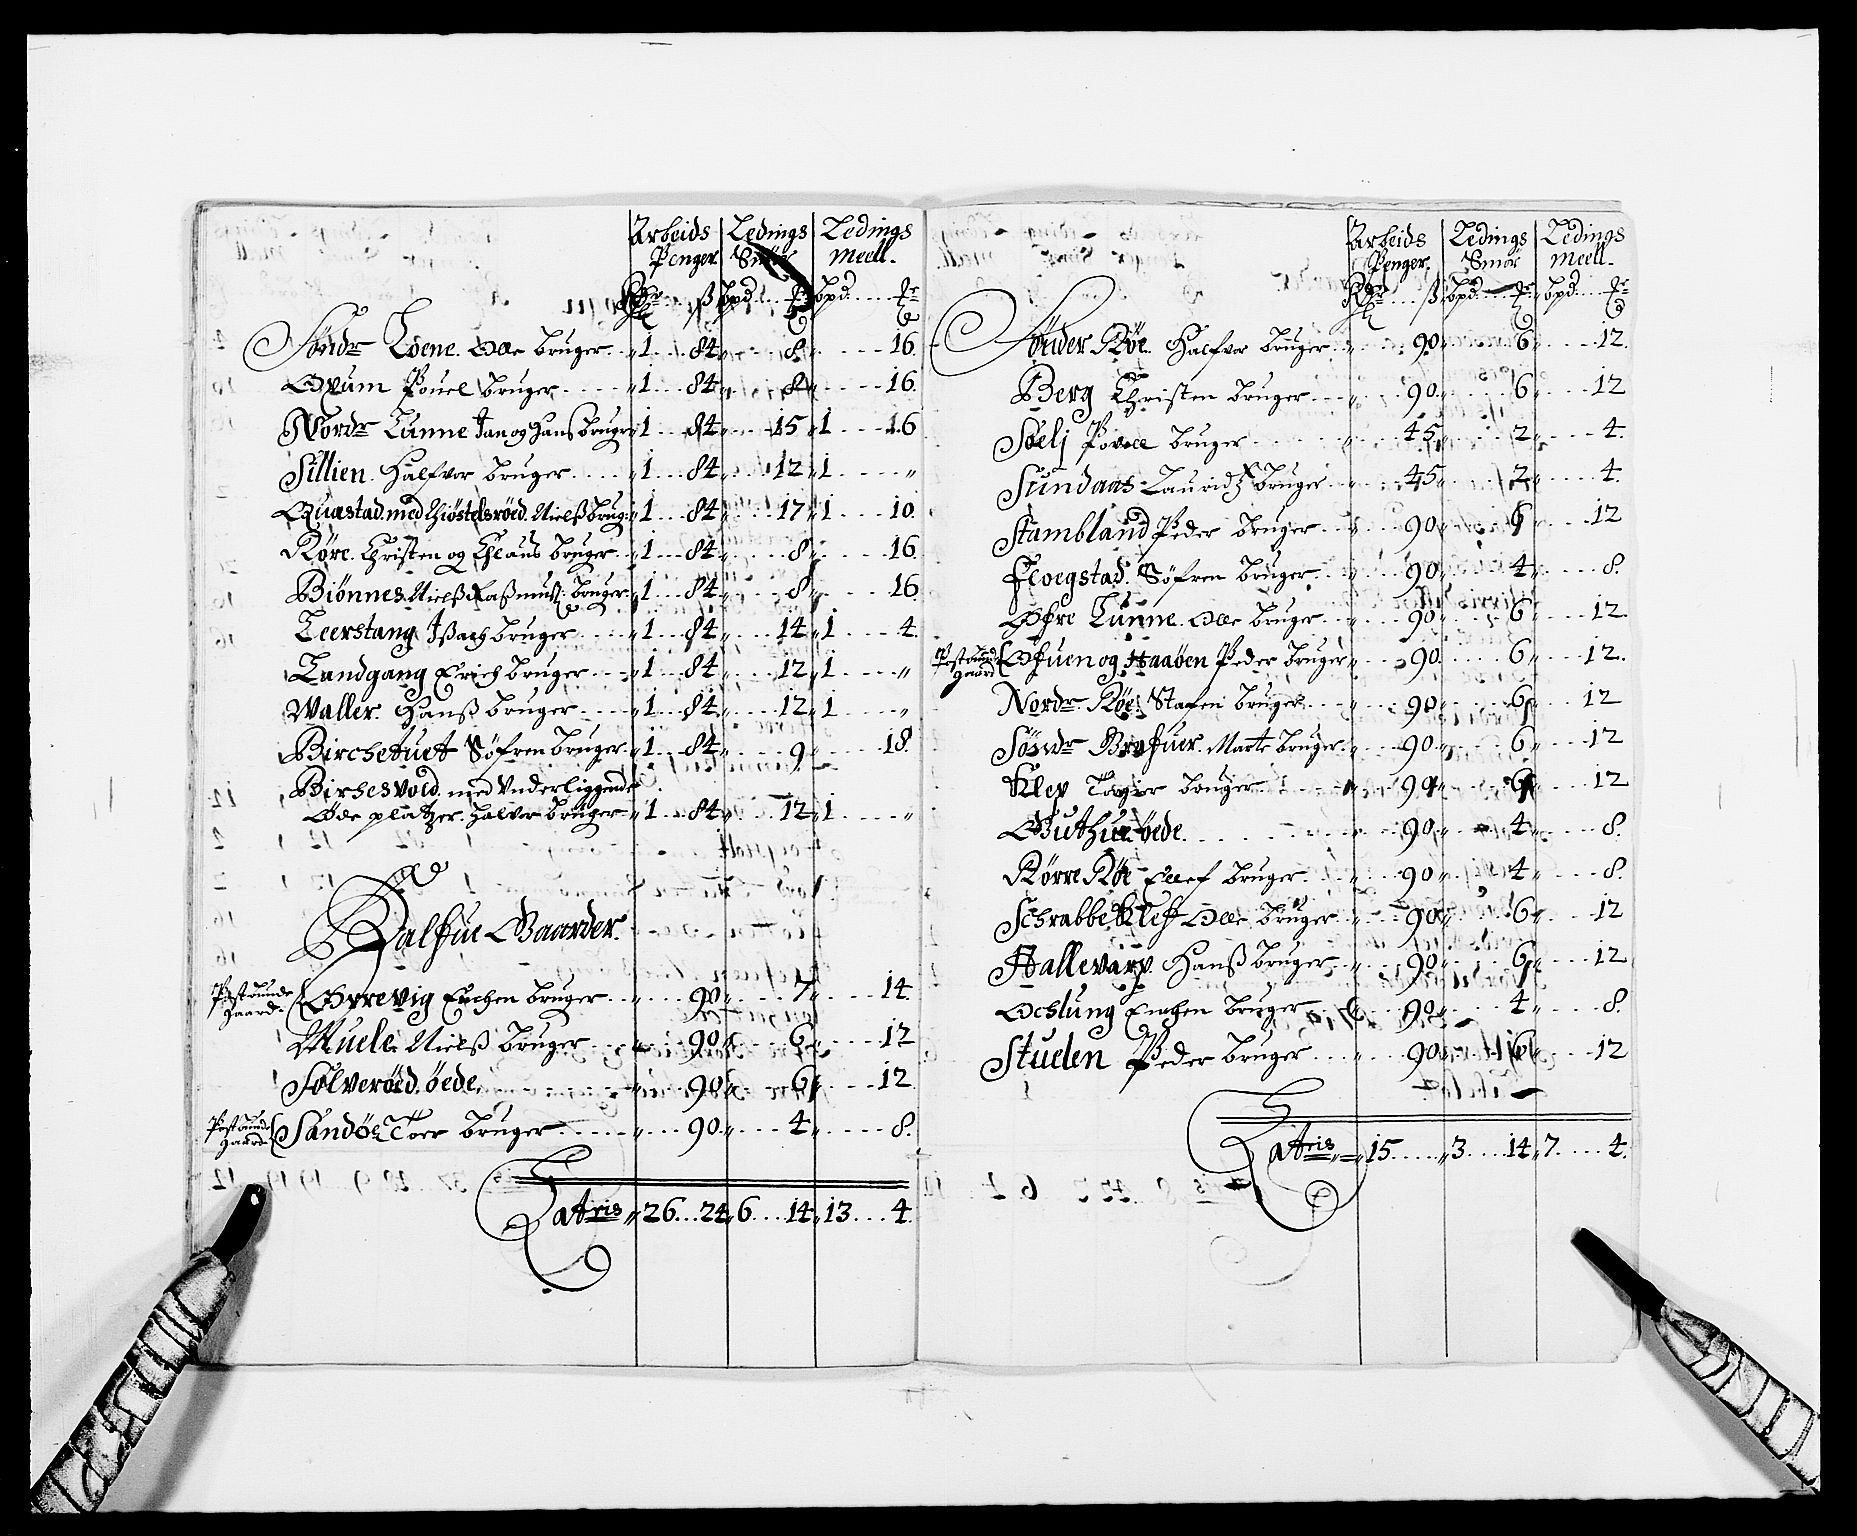 Arbeids Penger | Ledings Smör | Ledings Meell.
Rdr ß | bpd. | bpd.
Sóndr Loene. Olle bruger. „ 1 84 „ 8 „ 16
Oxum Pouel bruger „ 1 84 „ 8 „ 16
Nordr Tunne Jan og Hans bruger „ 1 84 „ 15 „ 1 16
Sillien. Halfvor bruger „ 1 84 „ 12 „ 1 „
Quastad med Nielß brug: „ 1 84 „ 17 „ 1 10
Röre. Christen og Claus bruger „ 1 84 „ 8 „ 16
Biönnes Nielß Raßmuß: bruger „ 1 84 „ 8 „ 16
Teerstang Jßach bruger „ 1 84 „ 14 „ 1 4
Landgang Erich bruger „ 1 84 „ 12 „ 1 „
Waller. Hanß bruger „ 1 84 „ 12 „ 1 „
Birchetuet Söfren bruger „ 1 84 „ 9 „ 18
Birchesvold med Underliggende
Öde platzer. Halvor bruger „ 1 84 „ 12 „ 1 „
Halfue Gaarder.
Post bunde gaard. Örrevig Enchen bruger „ 90 „ 7 „ 14
Muele Nielß bruger „ 90 „ 6 „ 12
Sölveröed. öede „ 90 „ 6 „ 12
Post bunde gaard Sandöe Toer bruger „ 90 „ 4 „ 8
Latris „ 26 24 „ 6 14 „ 13 4
Arbeids Penger. | Ledings Smör | Ledings Meell.
Rdr ß | bpd. | bpd.
Sönder Röe. Halfvor bruger „ 90 „ 6 „ 12
Berg Christen bruger „ 90 „ 6 „ 12
Söelj bruger „ 45 „ 2 „ 4
Sundaas Lauridtz bruger „ 45 „ 2 „ 4
Stambland Peder bruger „ 90 „ 6 „ 12
Floegstad. Söfren bruger „ 90 „ 4 „ 8
Öfre Tunne. Olle bruger „ 90 „ 6 „ 12
Post bunde gaard Öfuen og Haaöen Peder bruger „ 90 6 „ 12
Nordr. Röe. Stafen bruger „ 90 „ 6 „ 12
Söndr Brefuer. Marte bruger „ 90 „ 6 „ 12
Klep bruger „ 90 „ 6 „ 12
Guthue. öede. „ 90 „ 4 „ 8
Rörre Röe Ellef bruger „ 90 „ 4 „ 8
Schrabbe Kleff Olle bruger „ 90 „ 6 „ 12
Hallevarp Hanß bruger „ 90 „ 6 „ 12
Ochlung Enchen bruger „ 90 „ 4 „ 8
Stuelen Peder bruger „ 90 „ 6 „ 12
Latris „ 15 „ 3 14 „ 7 4